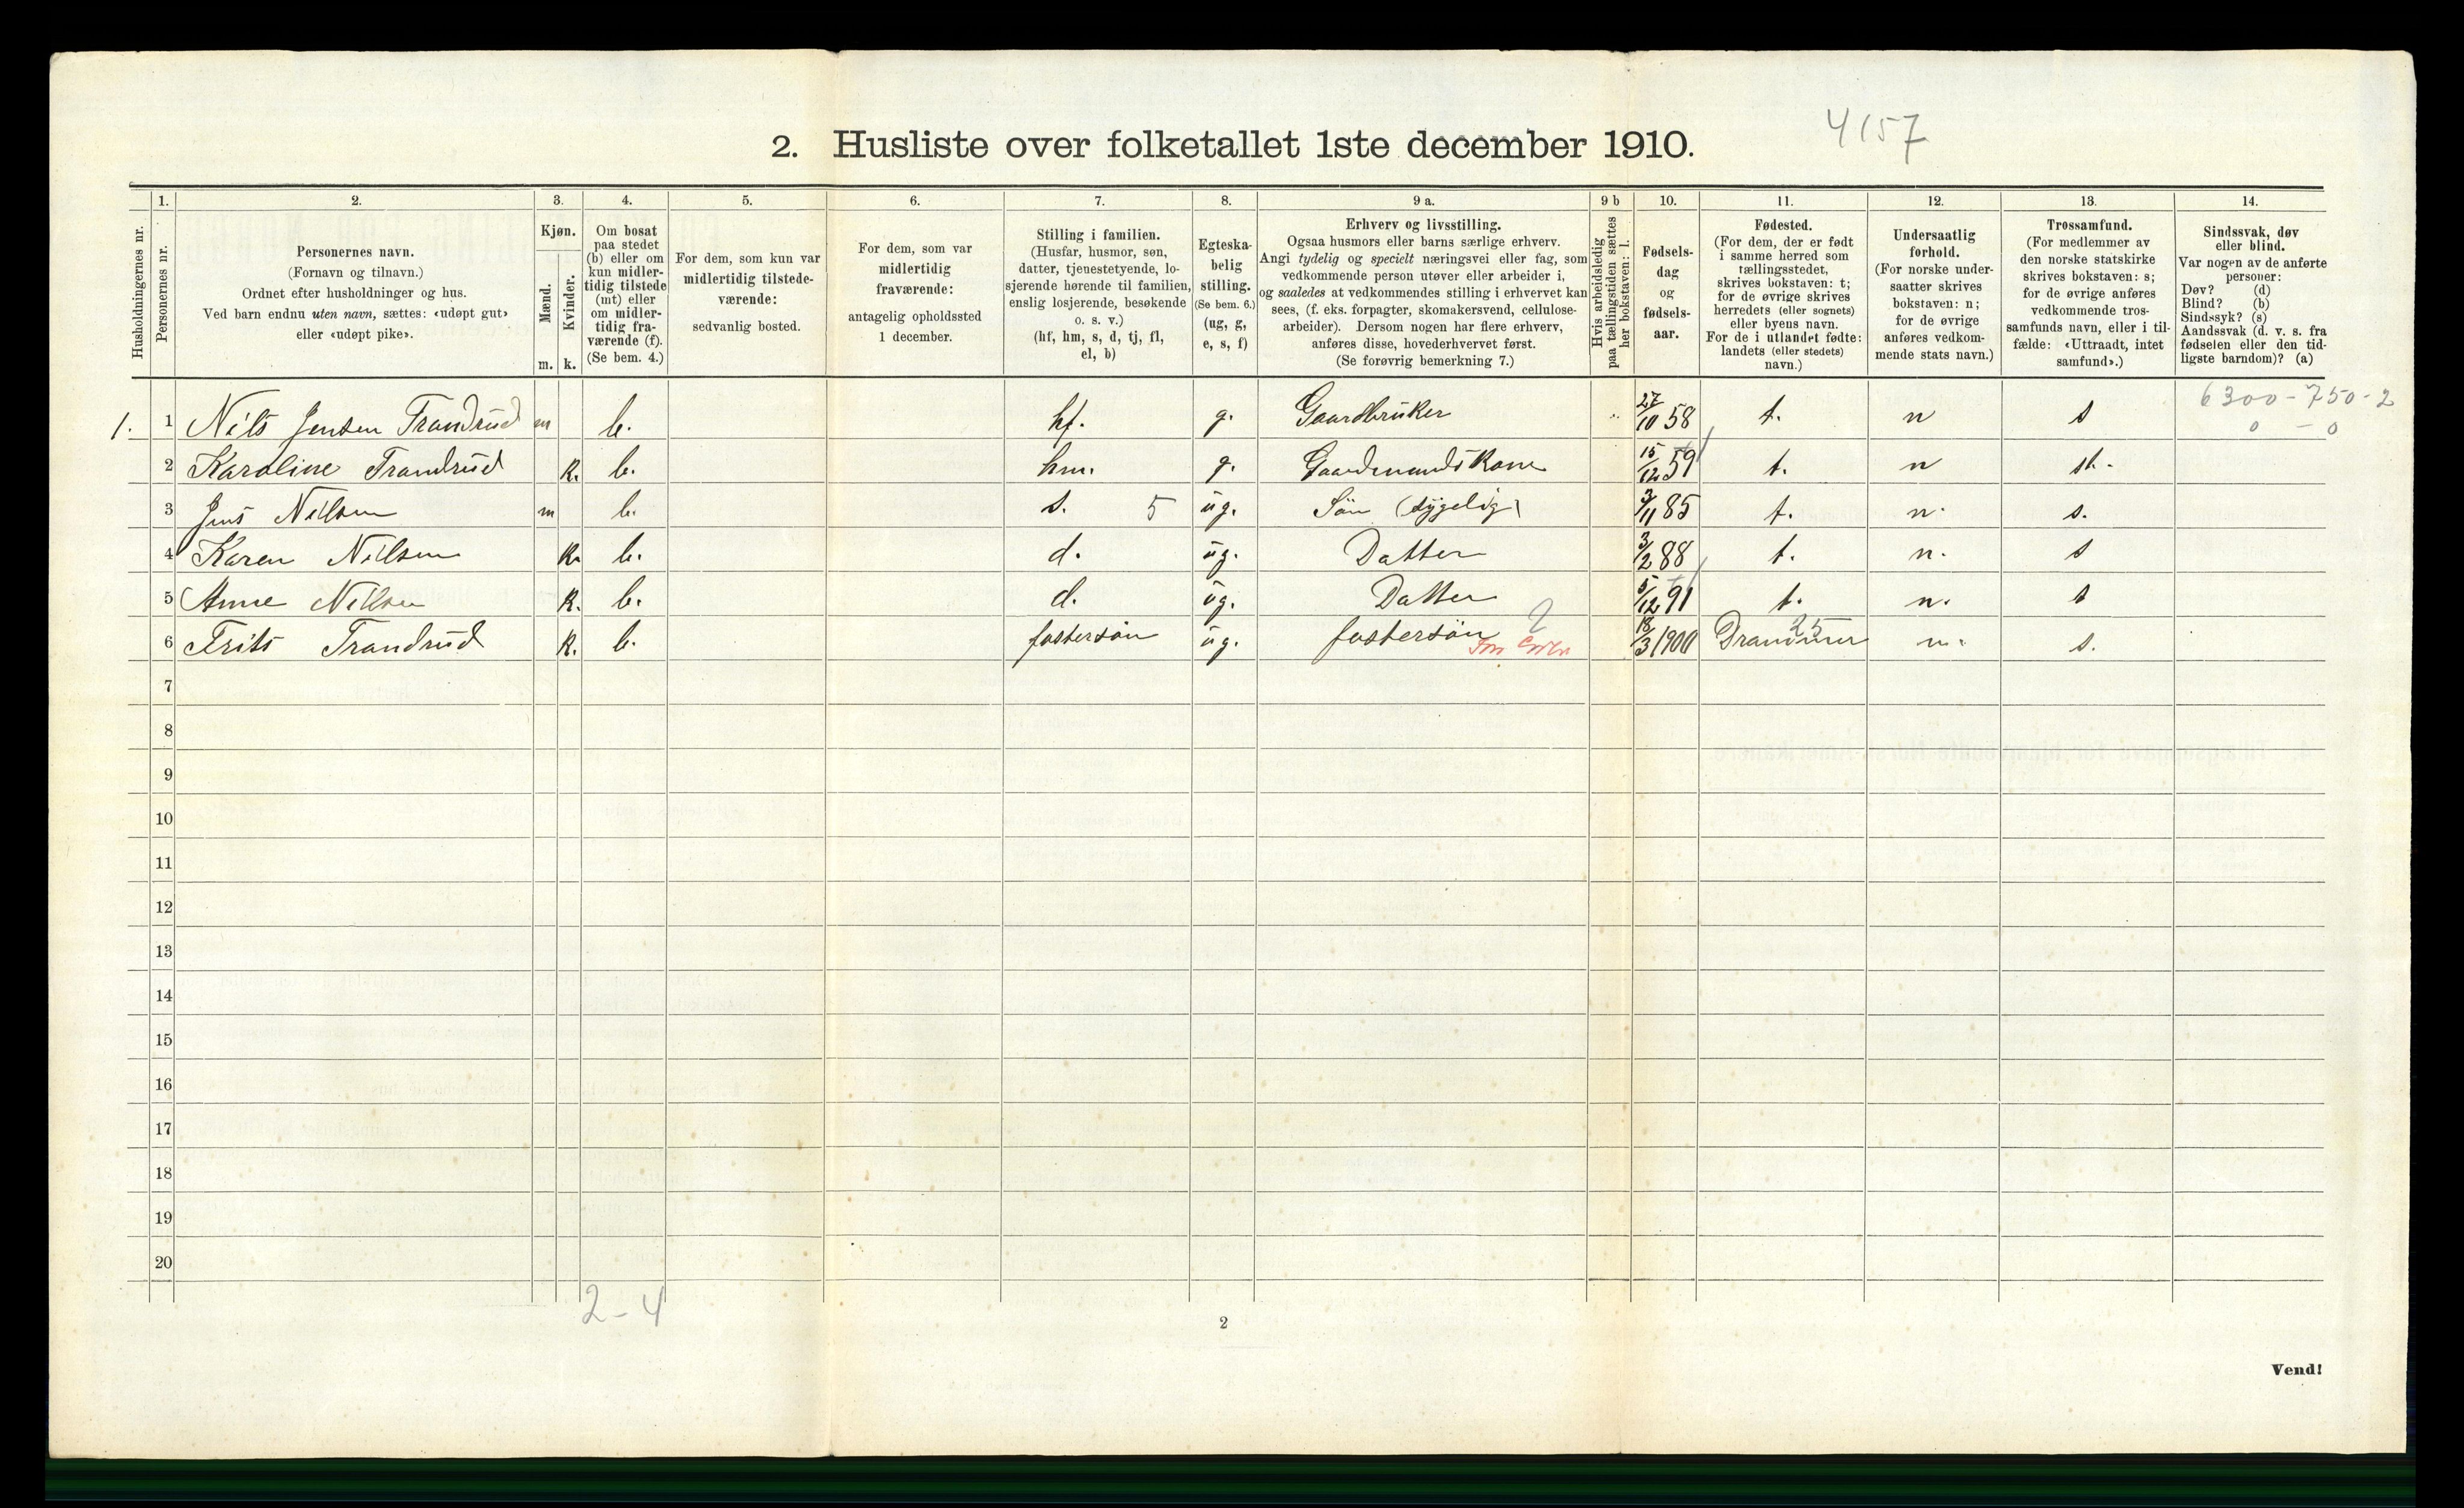 4157
2. Husliste over folketallet 1ste december 1910.
Husholdningernes nr.
1. Personernes nr.
2. Personernes navn.
(Fornavn og tilnavn.)
Ordnet efter husholdninger og hus.
Ved barn endnu uten navn, sættes: «udøpt gut»
eller «udøpt pike».
3. Kjøn.
Mænd. m.
Kvinder. k.
4. Om bosat
paa stedet
(b) eller om
kun midler-
tidig tilstede
(mt) eller
om midler-
tidig fra-
værende (f).
(Se bem. 4.)
5. For dem, som kun var
midlertidig tilstede-
værende:
sedvanlig bosted.
6. For dem, som var
midlertidig
fraværende:
antagelig opholdssted
1 december.
7. Stilling i familien.
(Husfar, husmor, søn,
datter, tjenestetyende, lo-
sjerende hørende til familien,
enslig losjerende, besøkende
o. s. v.)
(hf, hm, s, d, tj, fl,
el, b)
8. Egteska-
belig
stilling.
(Se bem. 6.)
(ug, g,
e, s, f)
9 a. Erhverv og livsstilling.
Ogsaa husmors eller barns særlige erhverv.
Angi tydelig og specielt næringsvei eller fag, som
vedkommende person utøver eller arbeider i,
og saaledes at vedkommendes stilling i erhvervet kan
sees, (f. eks. forpagter, skomakersvend, cellulose-
arbeider). Dersom nogen har flere erhverv,
anføres disse, hovederhvervet først.
(Se forøvrig bemerkning 7.)
9 b Hvis arbeidsledig
paa tællingstiden sættes
her bokstaven: l.
10. Fødsels-
dag
og
fødsels-
aar.
11. Fødested.
(For dem, der er født
i samme herred som
tællingsstedet,
skrives bokstaven: t;
for de øvrige skrives
herredets (eller sognets)
eller byens navn.
For de i utlandet fødte:
landets (eller stedets)
navn.)
12. Undersaatlig
forhold.
(For norske under-
saatter skrives
bokstaven: n;
for de øvrige
anføres vedkom-
mende stats navn.)
13. Trossamfund.
(For medlemmer av
den norske statskirke
skrives bokstaven: s;
for de øvrige anføres
vedkommende tros-
samfunds navn, eller i til-
fælde: «Uttraadt, intet
samfund».)
14. Sindssvak, døv
eller blind.
Var nogen av de anførte
personer:
Døv? (d)
Blind? (b)
Sindssyk? (s)
Aandssvak (d. v. s. fra
fødselen eller den tid-
ligste barndom)? (a)
6300-750-2
0 - 0
1. 1 Nils Jensen Trandrud m b. hf. g. Gaardbruker 27/10 58 t. n s
2 Karoline Trandrud k. b. hm. g. Gaardmandskone 15/12 59 t. n st.
3 Jens Nilsen m b. s. 5 ug. Søn (sygelig) 3/11 85 t. n. s.
4 Karen Nilsen k. b. d. ug. Datter 3/2 88 t. n. s
5 Anne Nilsen k. b. d. ug. Datter 5/12 91 t. n. s
6 Frits Trandrud k. b. fostersøn ug. fostersøn 18/3 1900 Drammen 25 n. s.
7
8
9
10
11
12
13
14
15
16
17
18
19
20
2-4
2
Vend!